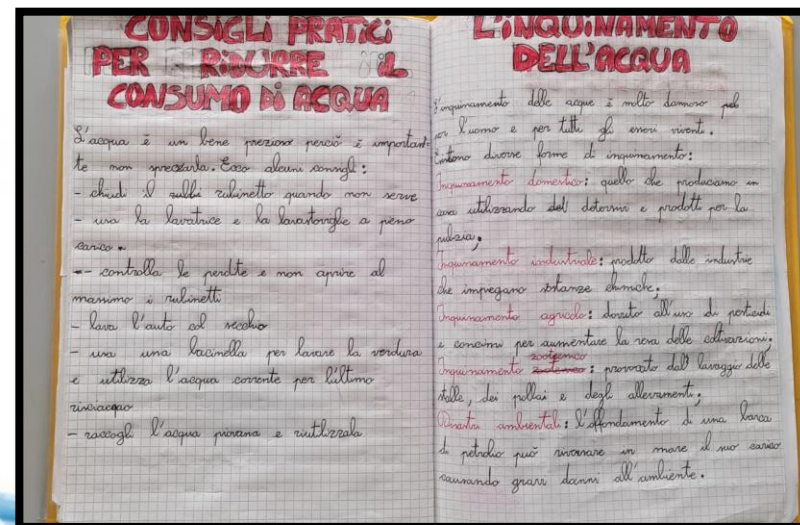 CONSIGLI PRATICI
PER RIDURRE IL
CONSUMO DI ACQUA
L'acqua è un bene prezioso perciò è important-
te non sprecarla. Ecco alcuni consigli:
- chiudi il rubinetto quando non serve
- usa la lavatrice e la lavastoviglie a pieno
carico.
- controlla le perdite e non aprire al
massimo i rubinetti
- lava l'auto col secchio
- usa una bacinella per lavare la verdura
e utilizza l'acqua corrente per l'ultimo
risciacquo
- raccogli l'acqua piovana e riutilizzala
L'INQUINAMENTO
DELL'ACQUA
L'inquinamento delle acque è molto dannoso
per l'uomo e per tutti gli esseri viventi.
Esistono diverse forme di inquinamento:
Inquinamento domestico: quello che produciamo in
casa utilizzando detersivi e prodotti per la
pulizia.
Inquinamento industriale: prodotto dalle industrie
che impiegano sostanze chimiche.
Inquinamento agricolo: dovuto all'uso di pesticidi
e concimi per aumentare la resa delle coltivazioni.
Inquinamento zootecnico: provocato dal lavaggio delle
stalle, dei pollai e degli allevamenti.
Disastri ambientali: l'affondamento di una barca
di petrolio può riversare in mare il suo carico
causando gravi danni all'ambiente.